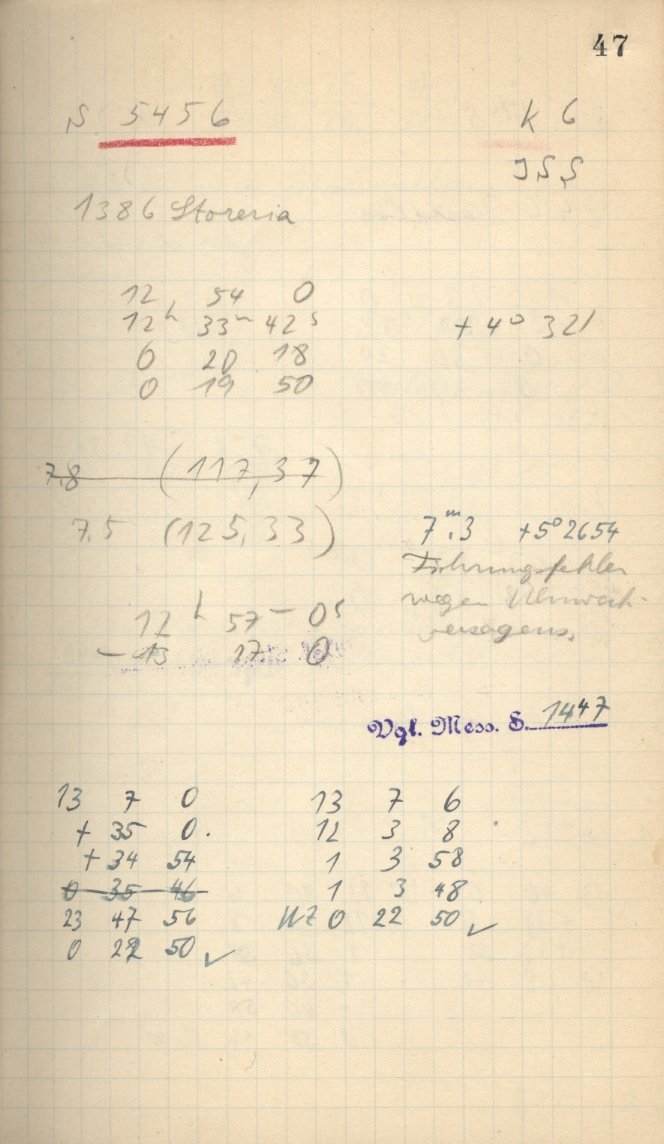 47
S 5456 K 6
JSS
1386 Storeria
12 54 0
12h 33m 42s + 4° 321
0 20 18
0 19 50
7.8 (117,37)
7.5 (125,33) 7m.3 +5° 2654
Führungsfehler
wegen Uhrwerk-
versagens.
12h 57m 0s
– 13 17 0
Vgl. Mess. S. 1447
13 7 0 13 7 6
+ 35 0. 12 3 8
+ 34 54 1 3 58
0 35 46 1 3 48
23 47 56 WZ 0 22 50 ✓
0 22 50 ✓